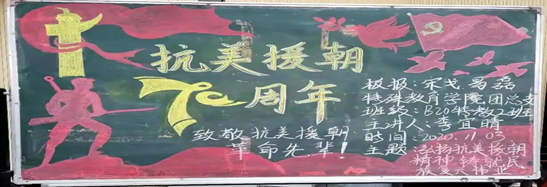 抗美援朝
70周年
致敬抗美援朝
革命先辈!
板报:宋戈 马磊
特殊教育学院团总支
班级:B20特教2班
主讲人:李宜晴
时间:2020.11.03
主题:弘扬抗美援朝
精神 铸就民
族复兴伟业